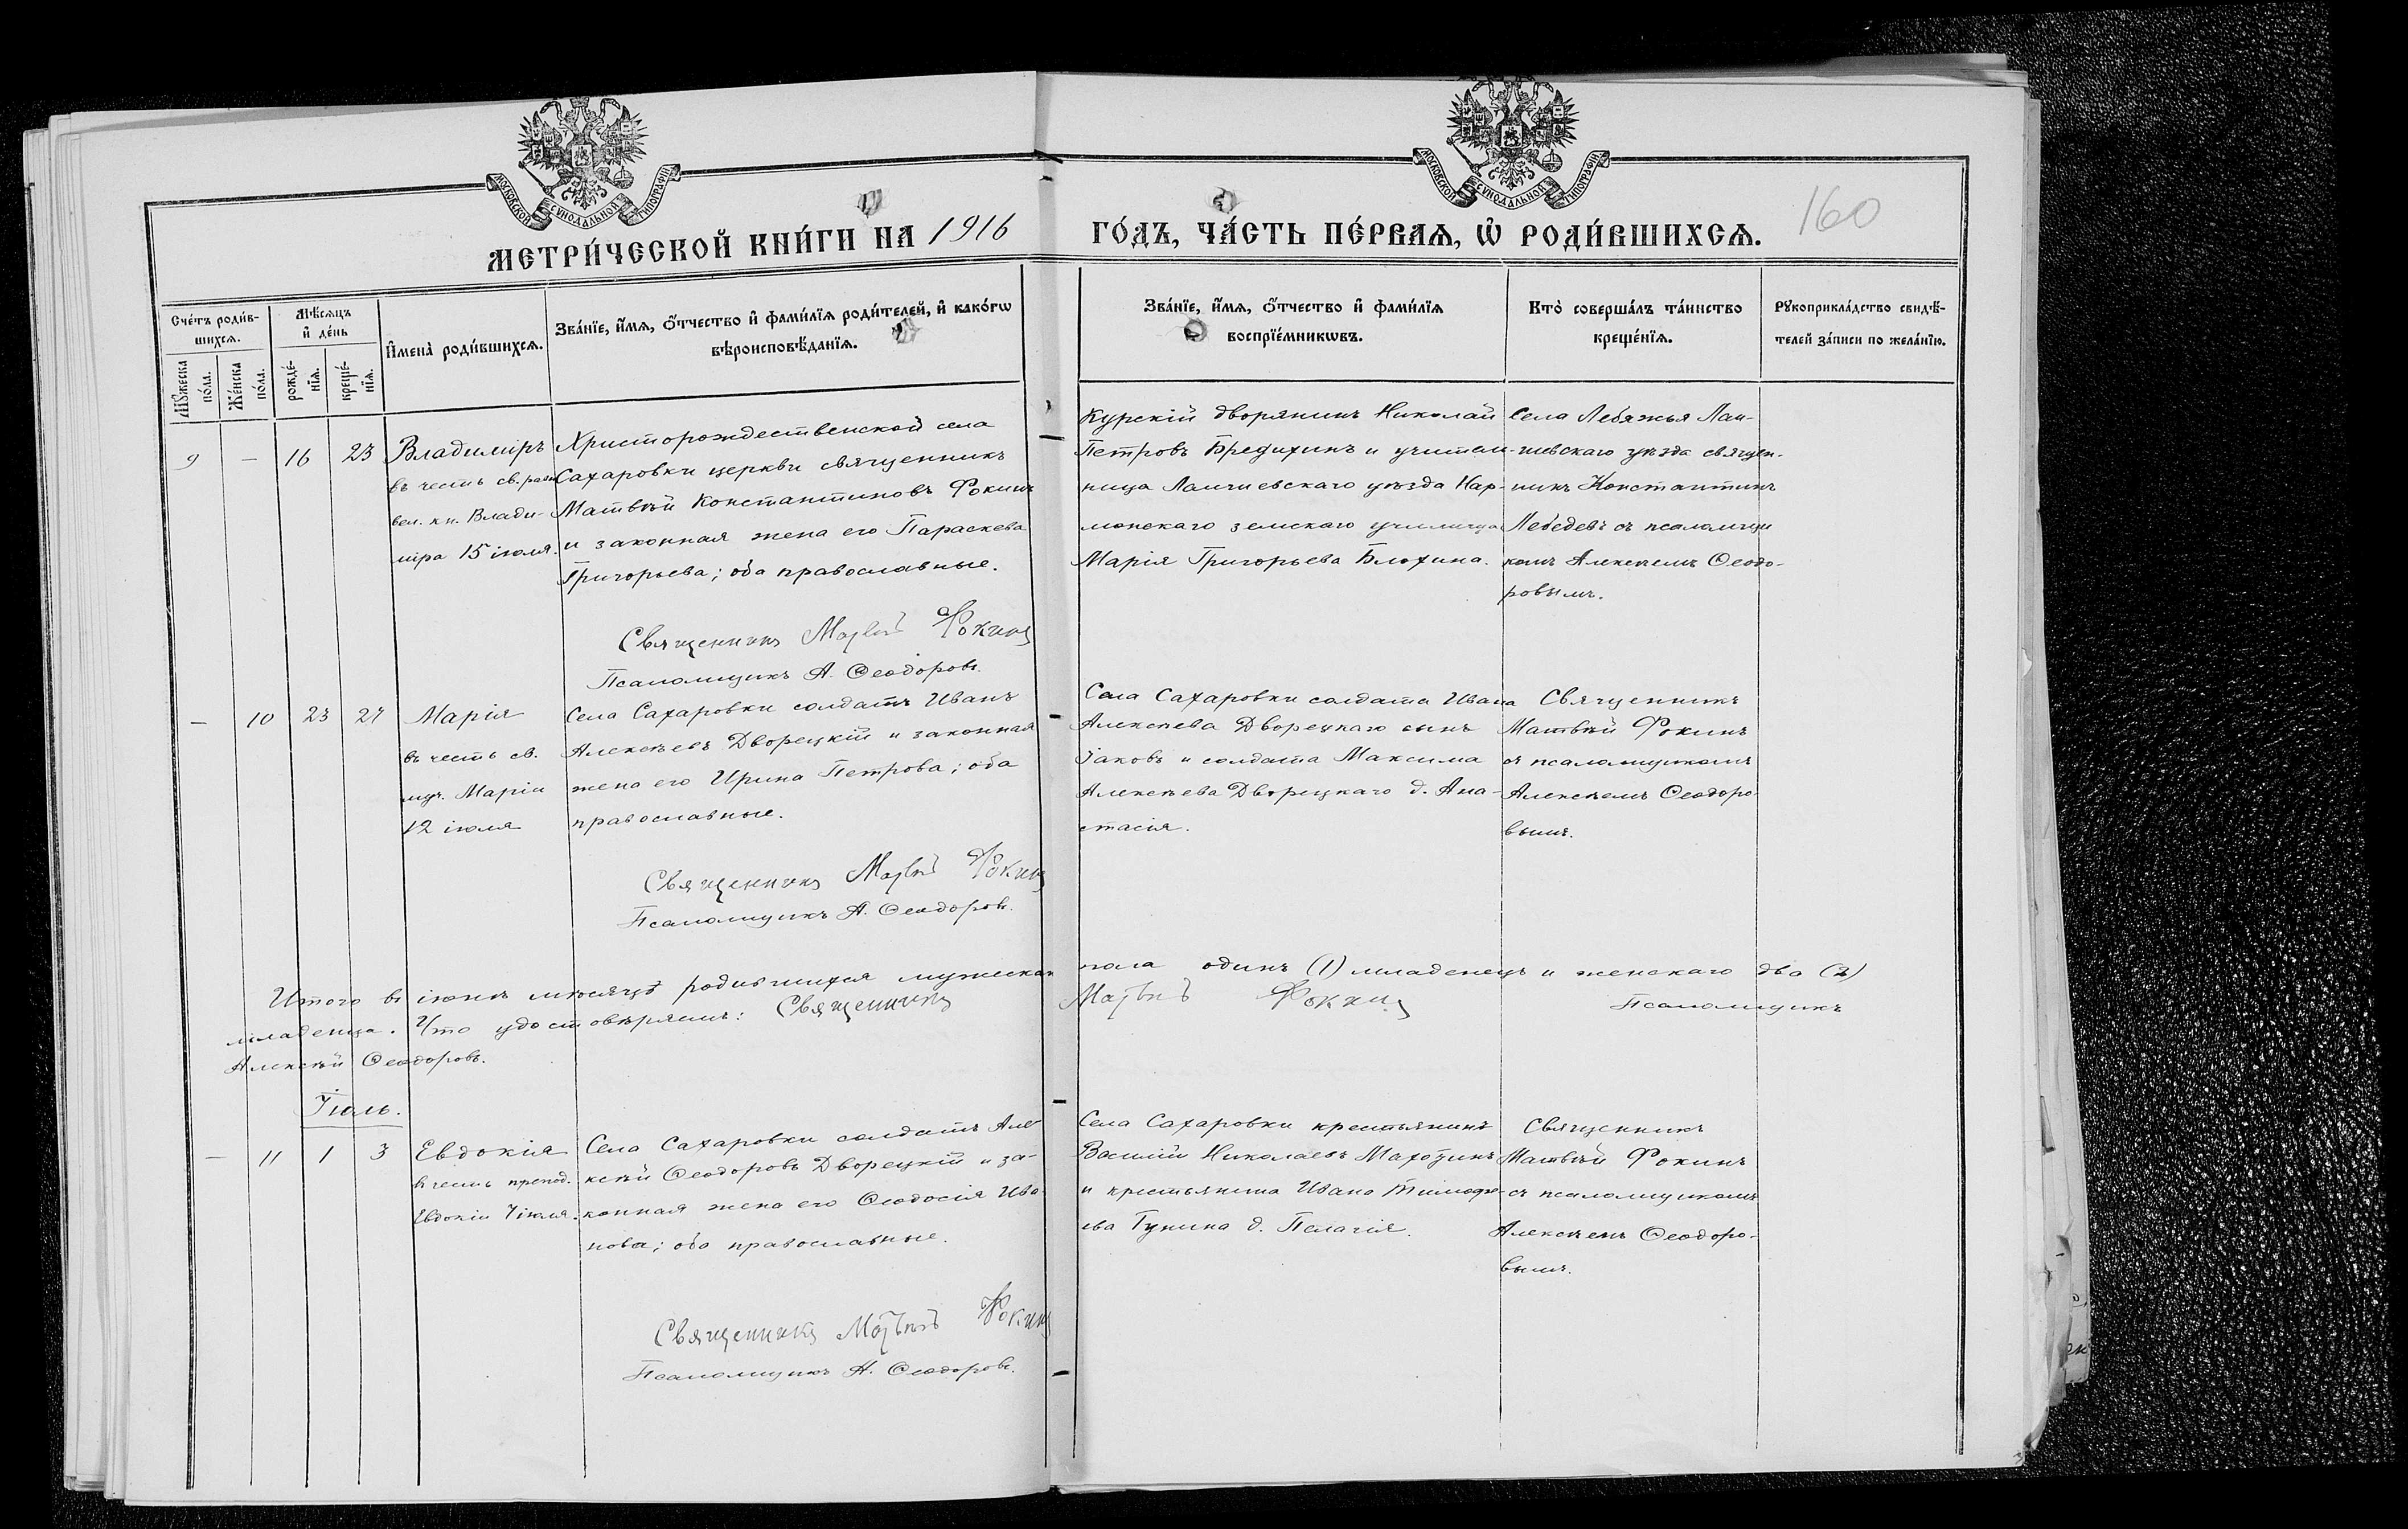 МОСКОВСКОЙ СѴНОДАЛЬНОЙ ТИПОГРАФІИ
МОСКОВСКОЙ СѴНОДАЛЬНОЙ ТИПОГРАФІИ
МЕТРИ́ЧЕСКОЙ КНИ́ГИ НА 1916
ГО́ДЪ, ЧА́СТЬ ПЕ́РВАѦ, Ѡ҆ РОДИ́ВШИХСѦ.
160
Сче́тъ роди́в-
шихсѧ.
Мѣ́сѧцъ
и҆ де́нь
И҆мена̀ роди́вшихсѧ.
Зва́нїе, и҆́мѧ, о҆́тчество и҆ фами́лїѧ роди́телей, и҆ како́гѡ
вѣроисповѣ́данїѧ.
Мꙋ́жеска
по́ла.
Же́нска
по́ла.
рожде́-
нїѧ.
креще́-
нїѧ.
Зва́нїе, и҆́мѧ, о҆́тчество и҆ фами́лїѧ
воспрїе́мникѡвъ.
Кто̀ соверша́лъ та́инство
креще́нїѧ.
Рꙋкоприкла́дство свидѣ́-
телей за́писи по жела́нїю.
9 — 16 23 Владиміръ
въ честь св. равн
вел. кн. Влади-
міра 15 іюля.
Христорождественской села
Сахаровки церкви священникъ
Матвѣй Константиновъ Фокинъ
и законная жена его Параскева
Григорьева; оба православные.
Священникъ Матвѣй Фокинъ
Псаломщикъ А. Ѳеодоровъ.
Курскій дворянинъ Николай
Петровъ Бредихинъ и учитель-
ница Лаишевскаго уѣзда Нар-
монскаго земскаго училища
Марія Григорьева Блохина.
Села Лебяжья Лаи-
шевскаго уѣзда священ-
никъ Константинъ
Лебедевъ съ псаломщи
комъ Алексѣемъ Ѳеодо-
ровымъ.
— 10 23 27 Марія
въ честь св.
муч. Маріи
12 іюля
Села Сахаровки солдатъ Иванъ
Алексѣевъ Дворецкій и законная
жена его Ирина Петрова; оба
православные.
Священникъ Матвѣй Фокинъ
Псаломщикъ А. Ѳеодоровъ.
Села Сахаровки солдата Ивана
Алексѣева Дворецкаго сынъ
Іаковъ и солдата Максима
Алексѣева Дворецкаго д. Ана-
стасія.
Священникъ
Матвѣй Фокинъ
съ псаломщикомъ
Алексѣемъ Ѳеодоро-
вымъ.
Итого въ іюнѣ мѣсяцѣ родившихся мужескаго пола одинъ (1) младенецъ и женскаго два (2)
младенца. Что удостовѣряемъ: Священникъ Матвѣй Фокинъ Псаломщикъ
Алексѣй Ѳеодоровъ.
Іюль.
— 11 1 3 Евдокія
въ честь препод.
Евдокіи 7 іюля.
Села Сахаровки солдатъ Але-
ксѣй Ѳеодоровъ Дворецкій и за-
конная жена его Ѳеодосія Ива-
нова; оба православные.
Священникъ Матвѣй Фокинъ
Псаломщикъ А. Ѳеодоровъ.
Села Сахаровки крестьянинъ
Василій Николаевъ Махотинъ
и крестьянина Ивана Тимофе-
ева Гунина д. Пелагія.
Священникъ
Матвѣй Фокинъ
съ псаломщикомъ
Алексѣемъ Ѳеодоро-
вымъ.